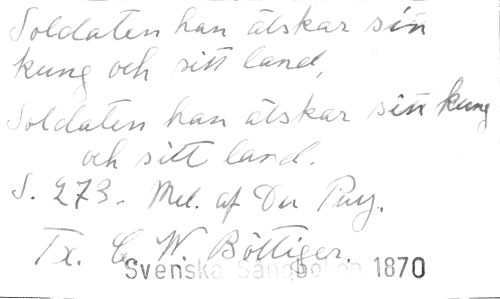 Soldaten han älskar sin
kung och sitt land,
Soldaten han älskar sin kung
och sitt land.
S. 273. Mel. af Du Puy.
Tx. C. W. Böttiger.
Svenska Sångboken 1870